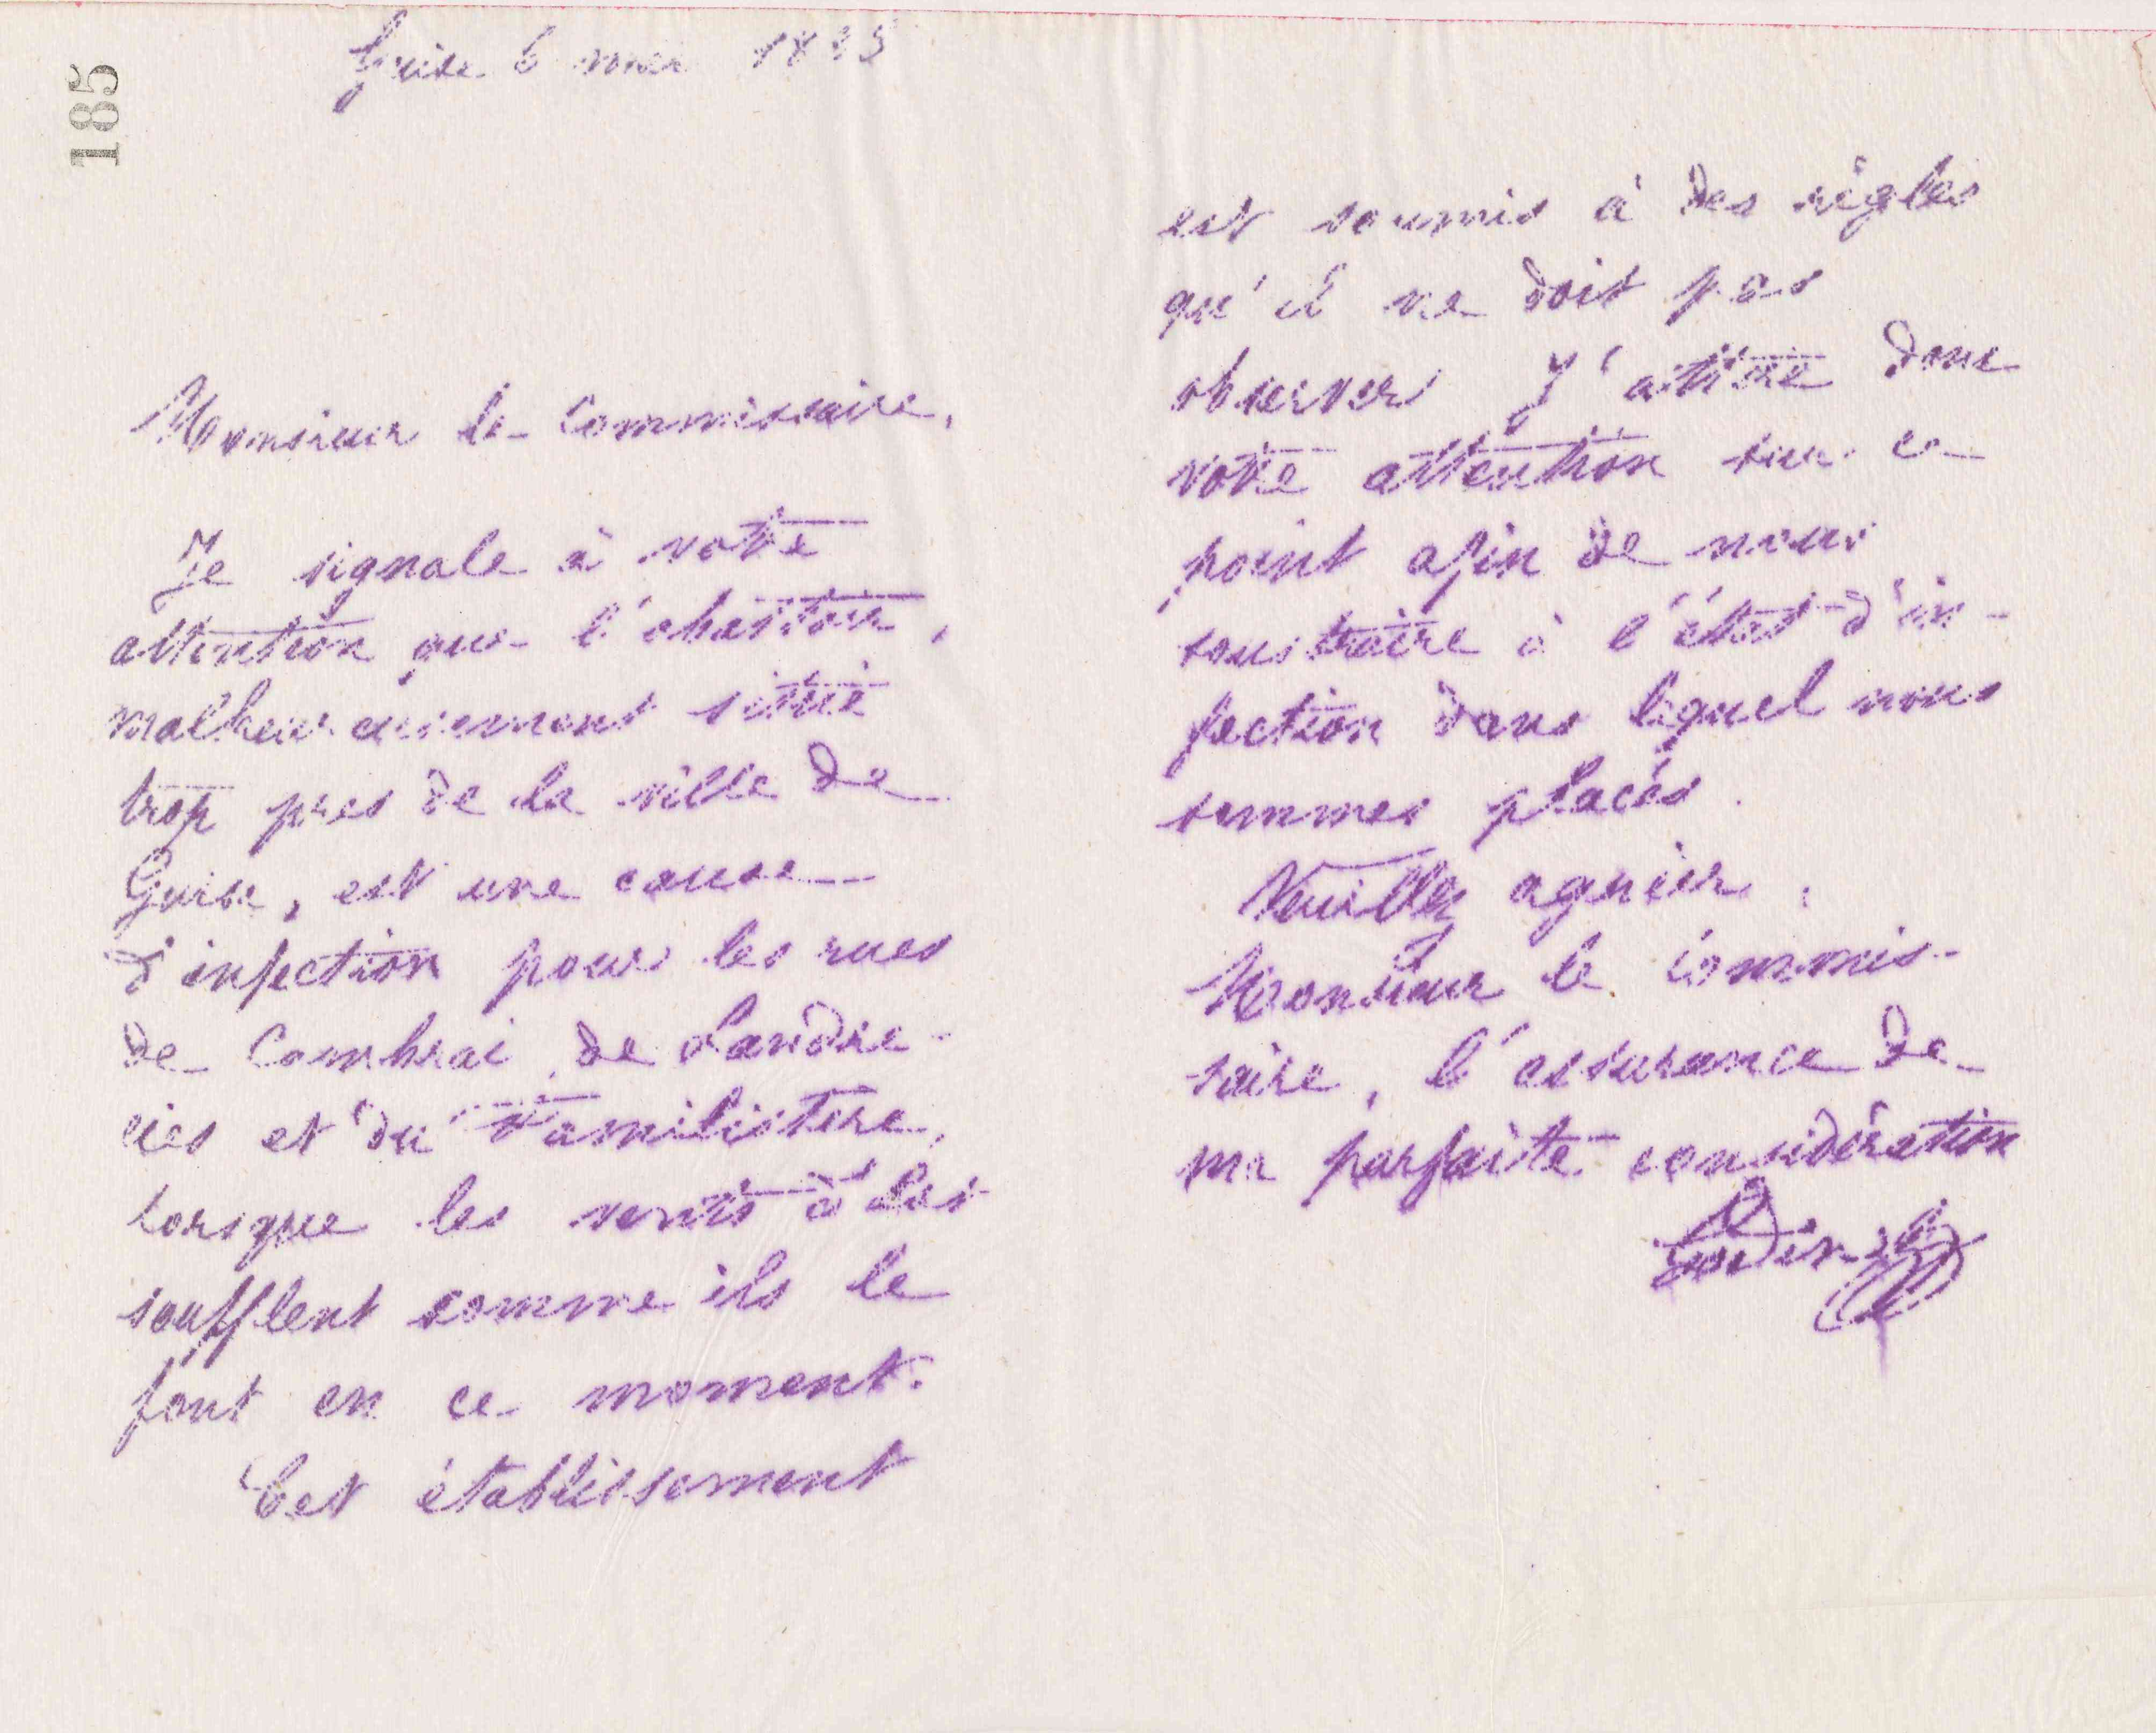 185
Guise 6 mai 18
Monsieur le Commissaire,
Je signale à votre
attention que l'abattoir,
malheureusement situé
trop pres de la ville de
Guise, est une cause
d'infection pour les rues
de Cambrai, de Landre-
cies et du Familistère,
lorsque les vents à l'est
soufflent comme ils le
font en ce moment.
Cet établissement
est soumis à des règles
qu'il ne doit pas
observer J'attire donc
votre attention sur ce
point afin de nous
soustraire à l'état d'in-
fection dans lequel nous
sommes placés.
Veuillez agréer,
Monsieur le Commis-
saire, l'assurance de
ma parfaite considération
Godin